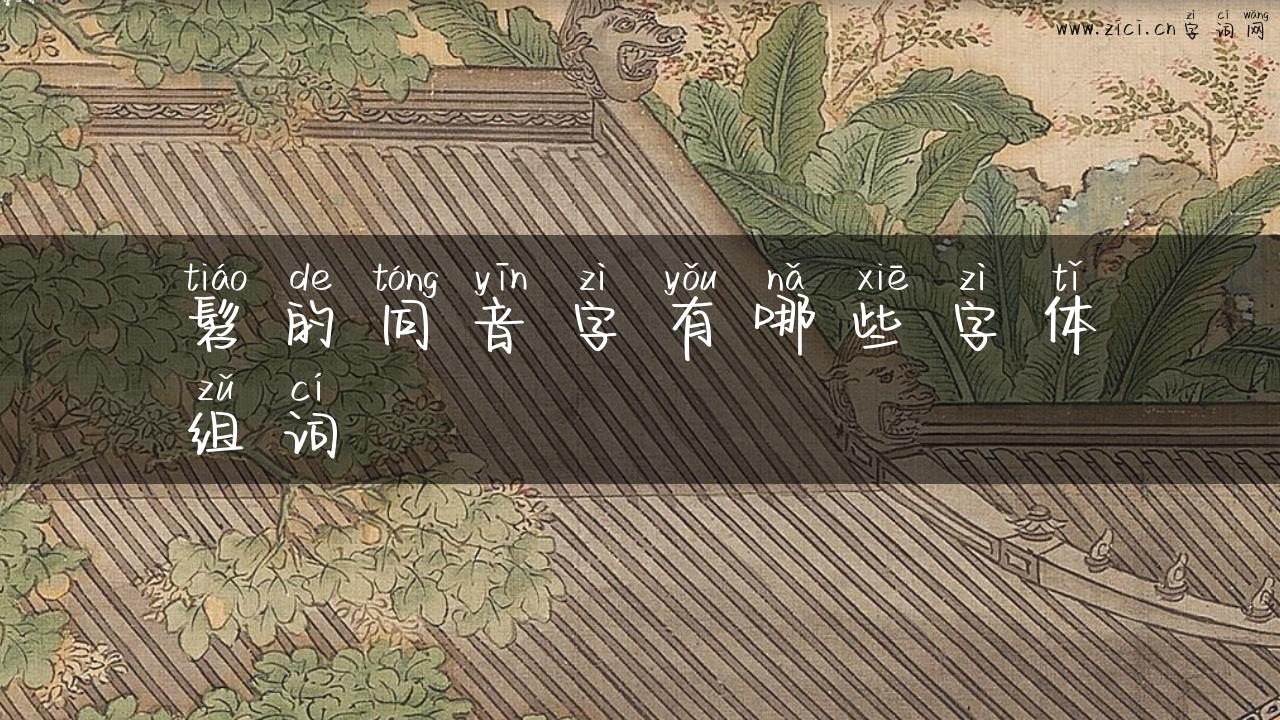 zì cí wǎng
www.zici.cn 字词网
tiáo de tóng yīn zì yǒu nǎ xiē zì tǐ
髫的同音字有哪些字体
zǔ cí
组词